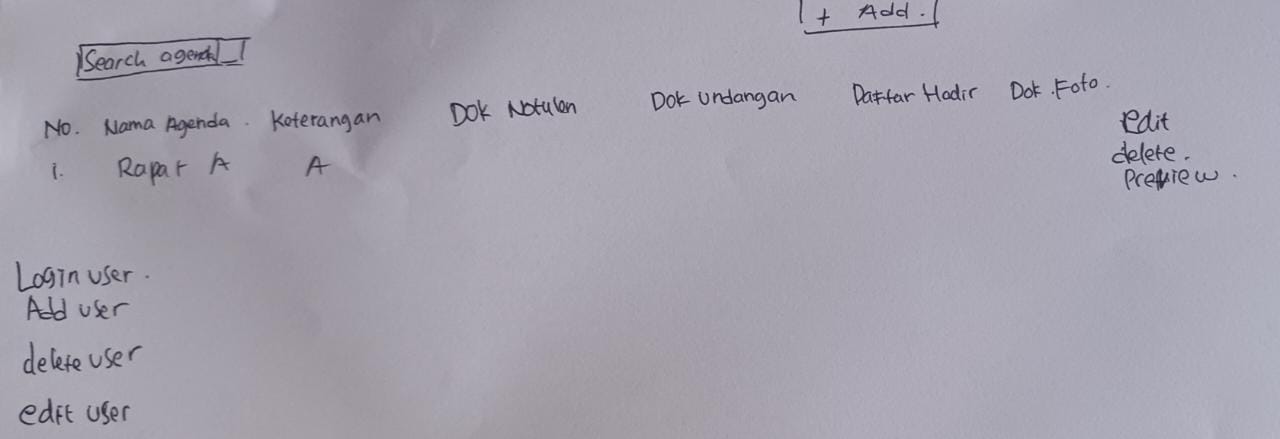 + Add.
Search agenda
No. Nama Agenda. Keterangan Dok Notulen Dok Undangan Daftar Hadir Dok. Foto.
1. Rapat A A
edit
delete.
Preview.
Login user.
Add user
delete user
edit user